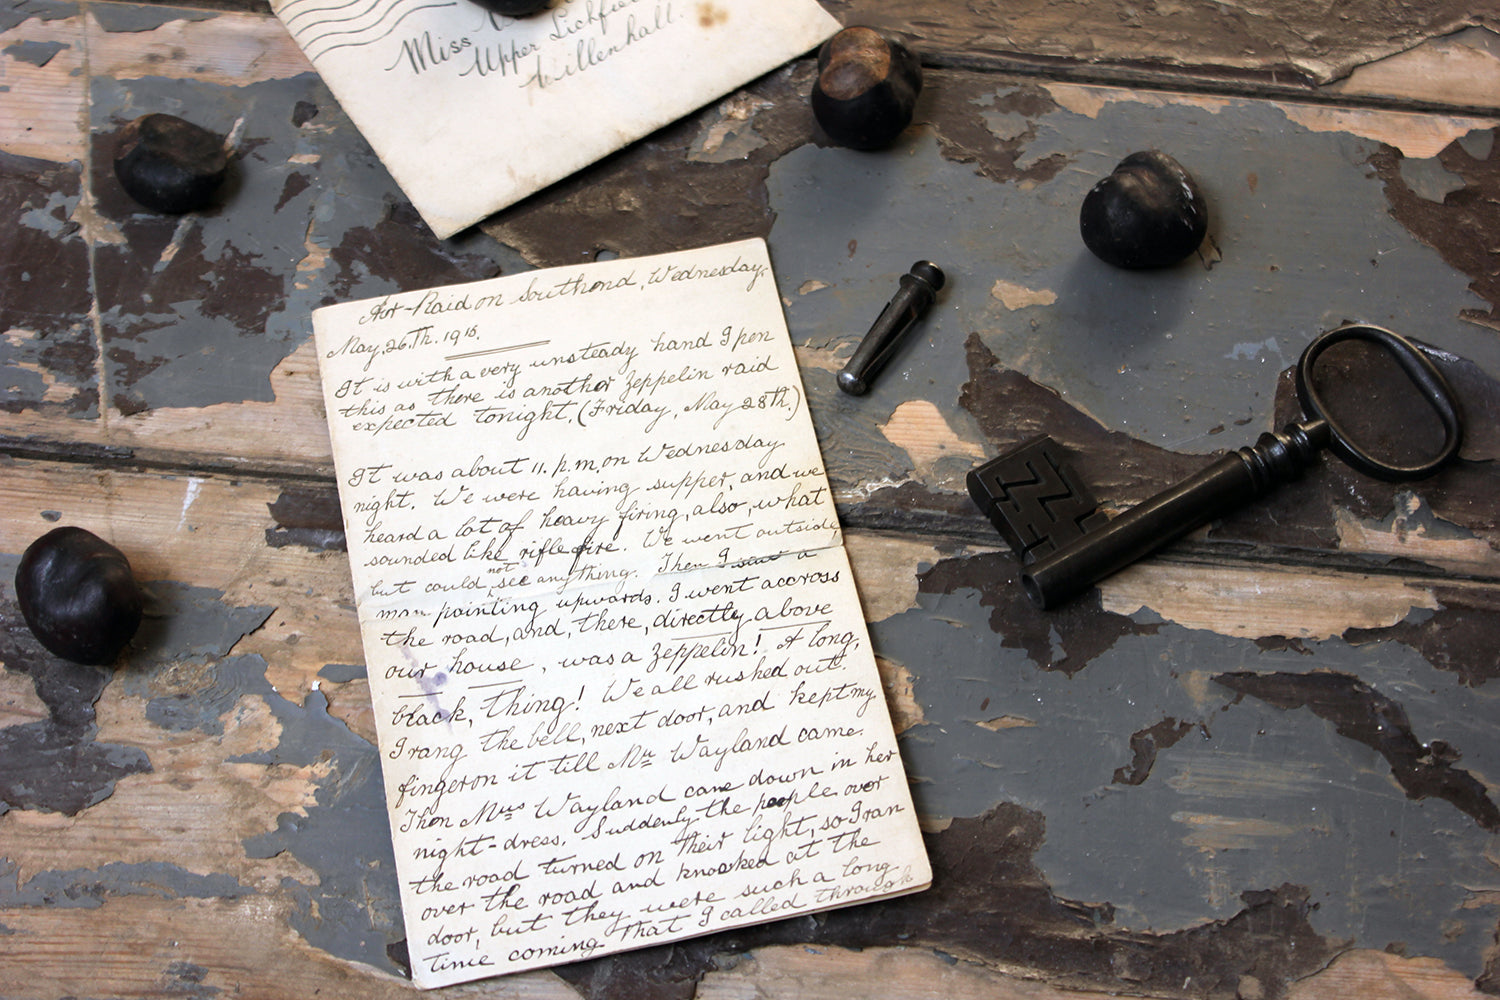 Miss
Upper Lichfie
Willenhall.
Air-Raid on Southend, Wednesday.
May. 26.Th. 1915.
It is with a very unsteady hand I pen
this as there is another Zeppelin raid
expected tonight. (Friday, May 28th.)
It was about 11. p.m. on Wednesday
night. We were having supper, and we
heard a lot of heavy firing, also, what
sounded like rifle fire. We went outside,
but could not see anything. Then I saw a
man pointing upwards. I went accross
the road, and, there, directly above
our house, was a Zeppelin! A long,
black, thing! We all rushed out.
I rang the bell, next door, and kept my
finger on it till Mr Wayland came.
Then Mrs Wayland came down in her
night-dress. Suddenly the people over
the road turned on their light, so I ran
over the road and knocked at the
door, but they were such a long
time coming that I called through